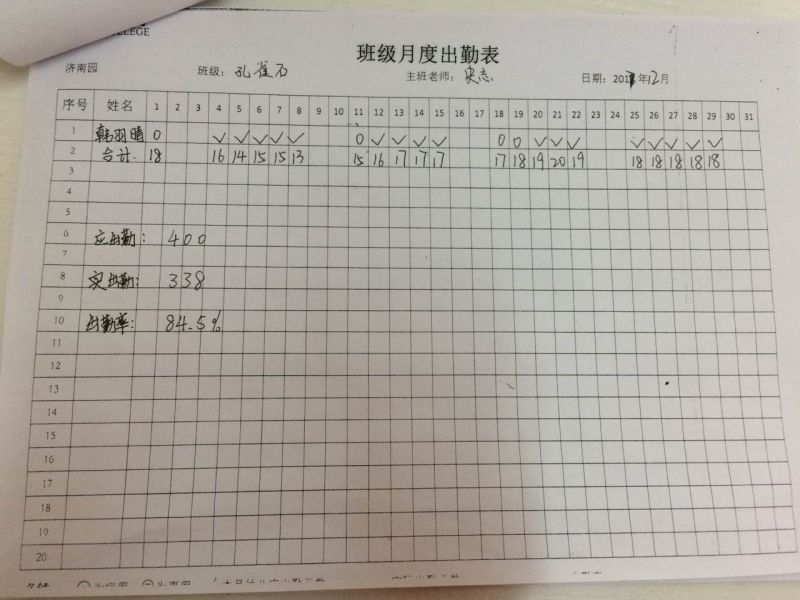 LLEGE
班级月度出勤表
济南园 班级: 孔雀石 主班老师: 史志 日期: 2017年12月
序号 姓名 1 2 3 4 5 6 7 8 9 10 11 12 13 14 15 16 17 18 19 20 21 22 23 24 25 26 27 28 29 30 31
1 韩羽晴 0 ✓ ✓ ✓ ✓ ✓ 0 ✓ ✓ ✓ ✓ 0 0 ✓ ✓ ✓ ✓ ✓ ✓ ✓ ✓
2 合计. 18 16 14 15 15 13 15 16 17 17 17 17 18 19 20 19 18 18 18 18 18
3
4
5
6 应出勤: 400
7
8 实出勤: 338
9
10 出勤率: 84.5%
11
12
13
14
15
16
17
18
19
20